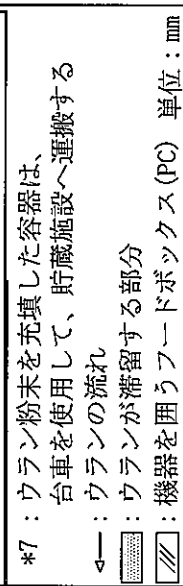 *7：ウラン粉末を充填した容器は、
台車を使用して、貯蔵施設へ運搬する
：ウランの流れ
：ウランが滞留する部分
：機器を囲うフードボックス(PC) 単位：mm